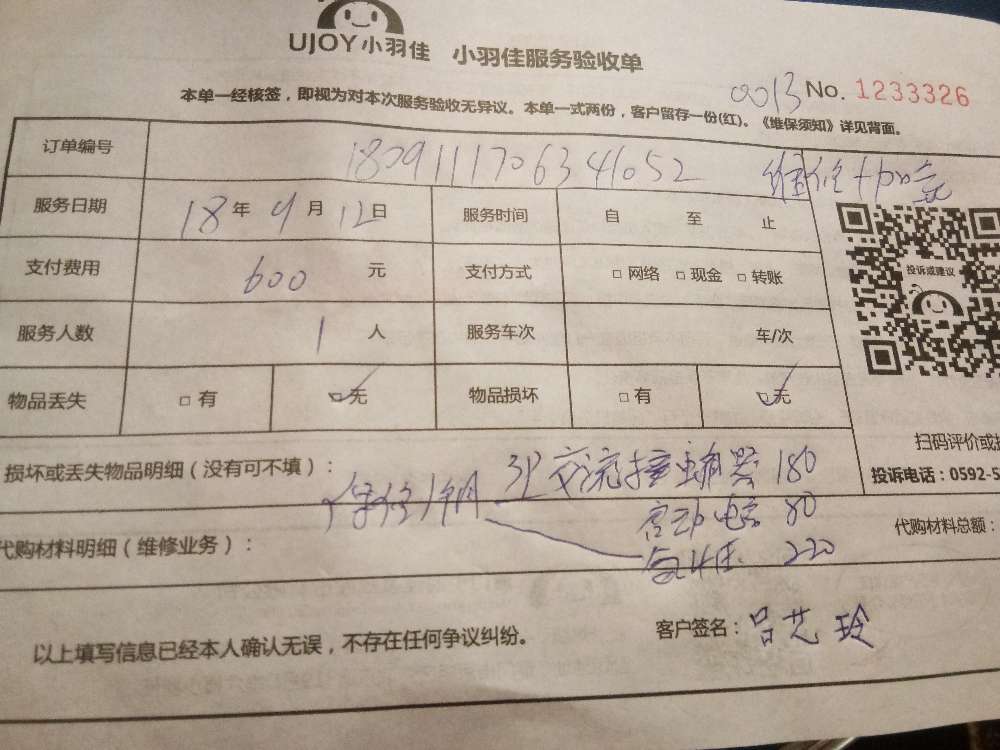 UJOY小羽佳 小羽佳服务验收单
0013 No. 1233326
本单一经核签，即视为对本次服务验收无异议。本单一式两份，客户留存一份(红)。《维保须知》详见背面。
订单编号 1809111706341052
服务日期 18年9月12日 服务时间 自 至 止
支付费用 600 元 支付方式 □网络 □现金 □转账
投诉或建议
服务人数 1 人 服务车次 车/次
物品丢失 □有 □无 物品损坏 □有 □无
扫码评价或
损坏或丢失物品明细（没有可不填）： 3P交流接触器 180
投诉电话：0592-5
保修1个月
启动电容 80
代购材料明细（维修业务）： 代购材料总额：
220
以上填写信息已经本人确认无误，不存在任何争议纠纷。 客户签名：吕艺玲